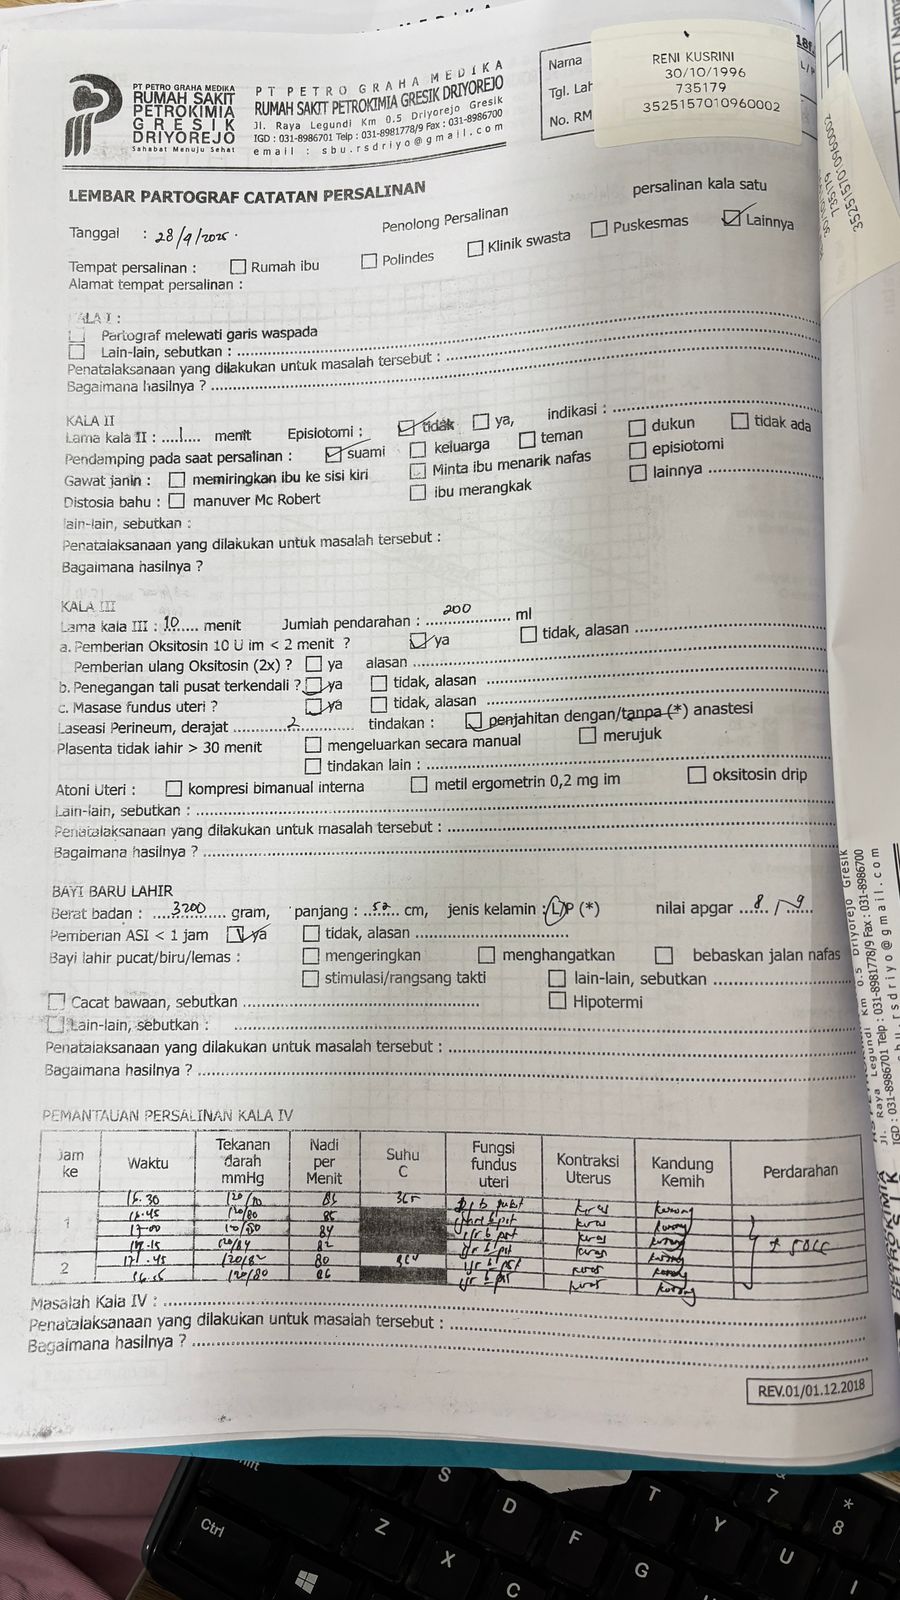 RENI KUSRINI
30/10/1996
735179
3525157010960002
Nama
Tgl. Lah
No. RM
PT PETRO GRAHA MEDIKA
RUMAH SAKIT
PETROKIMIA
GRESIK
DRIYOREJO
Sahabat Menuju Sehat
PT PETRO GRAHA MEDIKA
RUMAH SAKIT PETROKIMIA GRESIK DRIYOREJO
Jl. Raya Legundi Km 0.5 Driyorejo Gresik
IGD : 031-8986701 Telp : 031-8981778/9 Fax : 031-8986700
email : sbu.rsdriyo@gmail.com
LEMBAR PARTOGRAF CATATAN PERSALINAN
Tanggal : 28/9/2025. Penolong Persalinan persalinan kala satu
Tempat persalinan : Rumah ibu Polindes Klinik swasta Puskesmas Lainnya
Alamat tempat persalinan :
KALA I :
Partograf melewati garis waspada
Lain-lain, sebutkan :
Penatalaksanaan yang dilakukan untuk masalah tersebut :
Bagaimana hasilnya ?
KALA II
Lama kala II : 1 menit Episiotomi : tidak ya, indikasi :
Pendamping pada saat persalinan : suami keluarga teman dukun tidak ada
Gawat janin : memiringkan ibu ke sisi kiri Minta ibu menarik nafas episiotomi
Distosia bahu : manuver Mc Robert ibu merangkak lainnya
lain-lain, sebutkan :
Penatalaksanaan yang dilakukan untuk masalah tersebut :
Bagaimana hasilnya ?
KALA III
Lama kala III : 10 menit Jumlah pendarahan : 200 ml
a. Pemberian Oksitosin 10 U im < 2 menit ? ya tidak, alasan
Pemberian ulang Oksitosin (2x) ? ya alasan
b. Penegangan tali pusat terkendali ? ya tidak, alasan
c. Masase fundus uteri ? ya tidak, alasan
Laseasi Perineum, derajat 2 tindakan : penjahitan dengan/tanpa (*) anastesi
Plasenta tidak lahir > 30 menit mengeluarkan secara manual merujuk
tindakan lain :
Atoni Uteri : kompresi bimanual interna metil ergometrin 0,2 mg im oksitosin drip
Lain-lain, sebutkan :
Penatalaksanaan yang dilakukan untuk masalah tersebut :
Bagaimana hasilnya ?
BAYI BARU LAHIR
Berat badan : 3200 gram, panjang : 52 cm, jenis kelamin : L/P (*) nilai apgar 8 / 9
Pemberian ASI < 1 jam ya tidak, alasan
Bayi lahir pucat/biru/lemas : mengeringkan menghangatkan bebaskan jalan nafas
stimulasi/rangsang takti lain-lain, sebutkan
Cacat bawaan, sebutkan Hipotermi
Lain-lain, sebutkan :
Penatalaksanaan yang dilakukan untuk masalah tersebut :
Bagaimana hasilnya ?
PEMANTAUAN PERSALINAN KALA IV
Jam ke Waktu Tekanan darah mmHg Nadi per Menit Suhu C Fungsi fundus uteri Kontraksi Uterus Kandung Kemih Perdarahan
1 16.30 keras kosong
16.45 120/80 keras kosong
17.00 84 keras kosong
17.15 82 keras kosong
2 17.45 80 keras kosong
120/80 86 keras kosong
± 50cc
Masalah Kala IV :
Penatalaksanaan yang dilakukan untuk masalah tersebut :
Bagaimana hasilnya ?
REV.01/01.12.2018
735179
3525157010960002
Ctrl
S
D
F
G
Z
X
C
T
Y
U
I
7
*
8